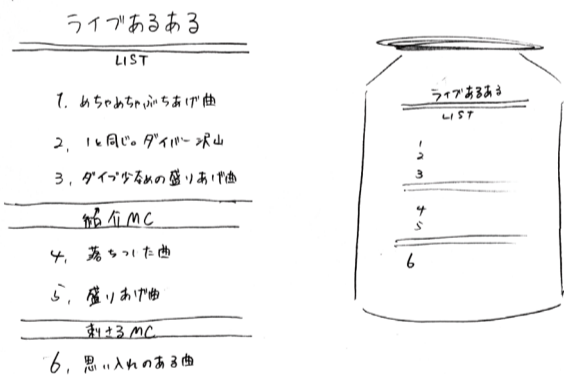 ライブあるある
LIST
1. めちゃめちゃぶちあげ曲
2, 1と同じ。ダイバー沢山
3, ダイブ少なめの盛りあげ曲
紹介MC
4, 落ちついた曲
5, 盛りあげ曲
刺さるMC
6, 思い入れのある曲
ライブあるある
LIST
1
2
3
4
5
6